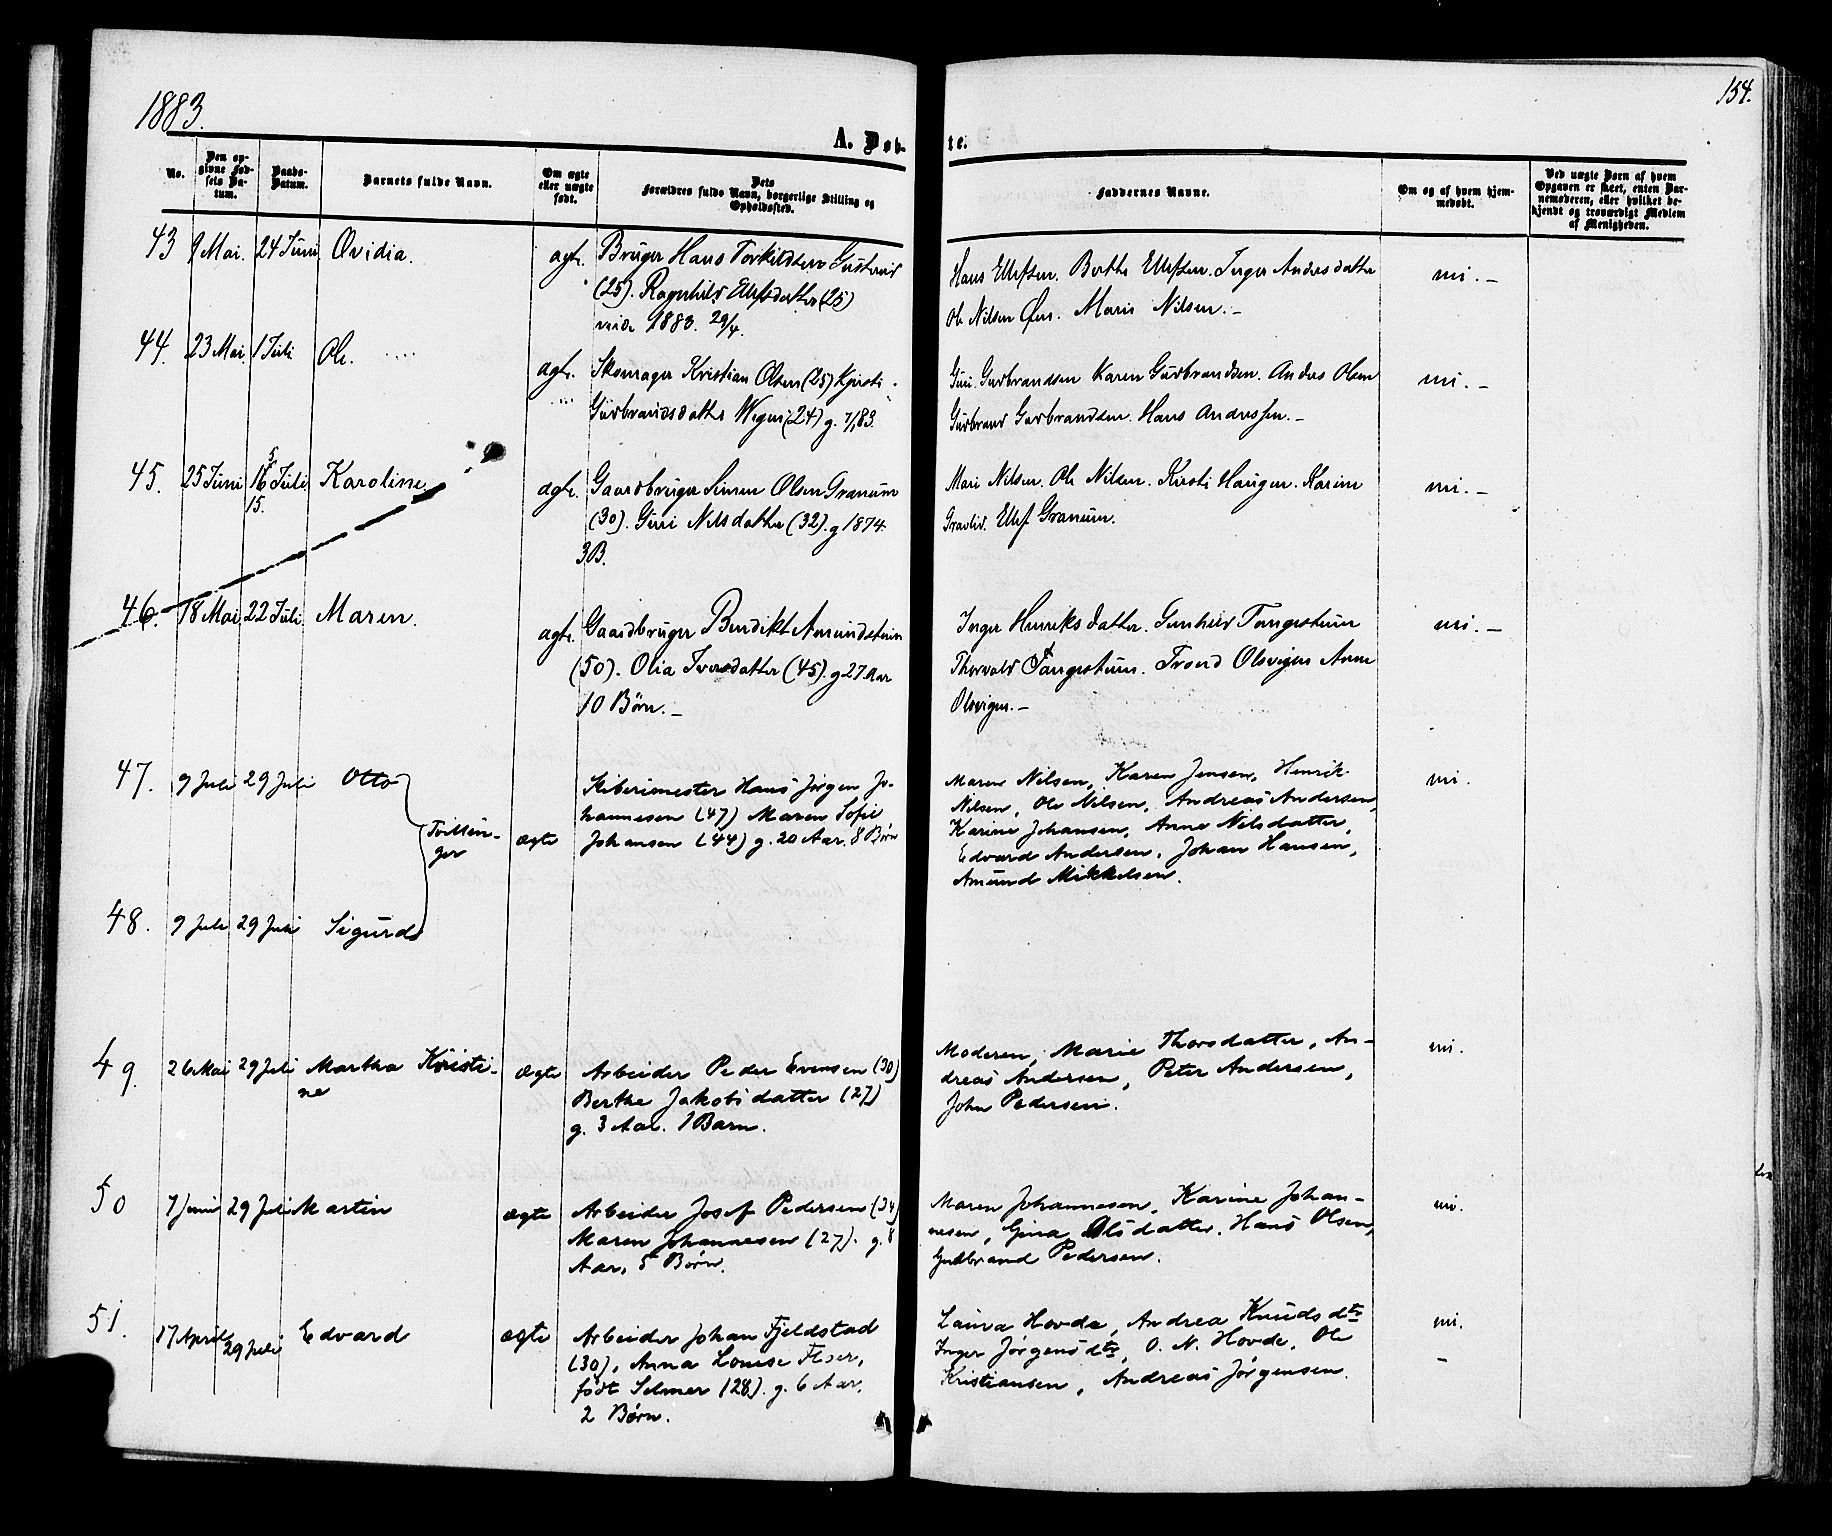 1883.
154.
A. Døb-
te.
No.
Den op-
givne Fød-
sels Da-
tum.
Daabs-
Datum.
Barnets fulde Navn.
Om ægte
eller uægte
født.
Dets
Forældres fulde Navn, borgerlige Stilling og
Opholdssted.
Faddernes Navne.
Om og af hvem hjem-
medøbt.
Ved uægte Børn af hvem
Opgaven er skeet, enten Bar-
nemoderen, eller hvilket be-
kjendt og troværdigt Medlem
af Menigheden.
43 9 Mai. 24 Juni Ovidia. ægte. Bruger Hans Torkildsen
(25). Ragnhild Ellefsdatter (25)
1883. 29/4.
Hans Ellefsen. Berthe Ellefsen. Inger Andersdatter
Ole Nilsen Øen. Maria Nilsen. –
ni. –
44. 23 Mai. 1 Juli Ole. ægte. Skomager Kristian Olsen (25) Kjersti
Gudbrandsdatter (24) g. 7/1 83.
Guri Gudbrandsen Karen Gudbrandsen. Anders Olsen
Gudbrand Gudbrandsen. Hans Andersen. –
ni. –
45. 25 Juni 15. Juli Karoline. ægte. Gaardbruger Simen Olsen Granum
(30). Guri Nilsdatter (32). g 1874.
3 B.
Mari Nilsen. Ole Nilsen. Kirsti Haugen. Karine
Gravlid. Ellef Granum.
ni. –
46. 18 Mai 22 Juli Maren. ægte. Gaardbruger Bendikt
(50). Olia Iversdatter (45). g 27 Aar
10 Børn. –
Inger Henriksdatter. Gunhild Tangestuen
Thorvald Tangestuen. Trond Olsvigen Anne
Olsvigen. –
ni. –
47. 9 Juli 29 Juli Otto
Tvillin-
ger ægte
Stiberimester Hans Jørgen Jo-
hannesen (47) Maren Sofie
Johansen (44) g. 20 Aar. 8 Børn
Maren Nilsen, Karen Jensen, Henrik
Nilsen, Ole Nilsen, Andreas Andersen,
Karine Johansen, Anne Nilsdatter,
Edvard Andersen, Johan Hansen,
Amund Mikkelsen.
ni.
48. 9 Juli 29 Juli Sigurd
49. 26 Mai 29 Juli Martha Kristi-
ne ægte Arbeider Peder Evensen (30)
Berthe Jakobsdatter (27)
g. 3 Aar. 1 Barn.
Moderen, Marie Thorsdatter, An-
dreas Andersen, Peter Andersen,
John Pedersen.
ni.
50 7 Juni 29 Juli Martin ægte Arbeider Josef Pedersen (34)
Maren Johannesen (27). g. 8
Aar, 5 Børn.
Maren Johannesen, Karine Johan-
nesen, Gina Olsdatter, Hans Olsen,
Gudbrand Pedersen.
ni.
51. 17 April 29 Juli Edvard ægte Arbeider Johan Fjeldstad
(30), Anna Louise
født Selmer (28). g. 6 Aar,
2 Børn.
Laura Hovde, Andrea Knudsdtr
Inger Jørgensdtr, O. N. Hovde, Ole
Kristiansen, Andreas Jørgensen.
ni.
–